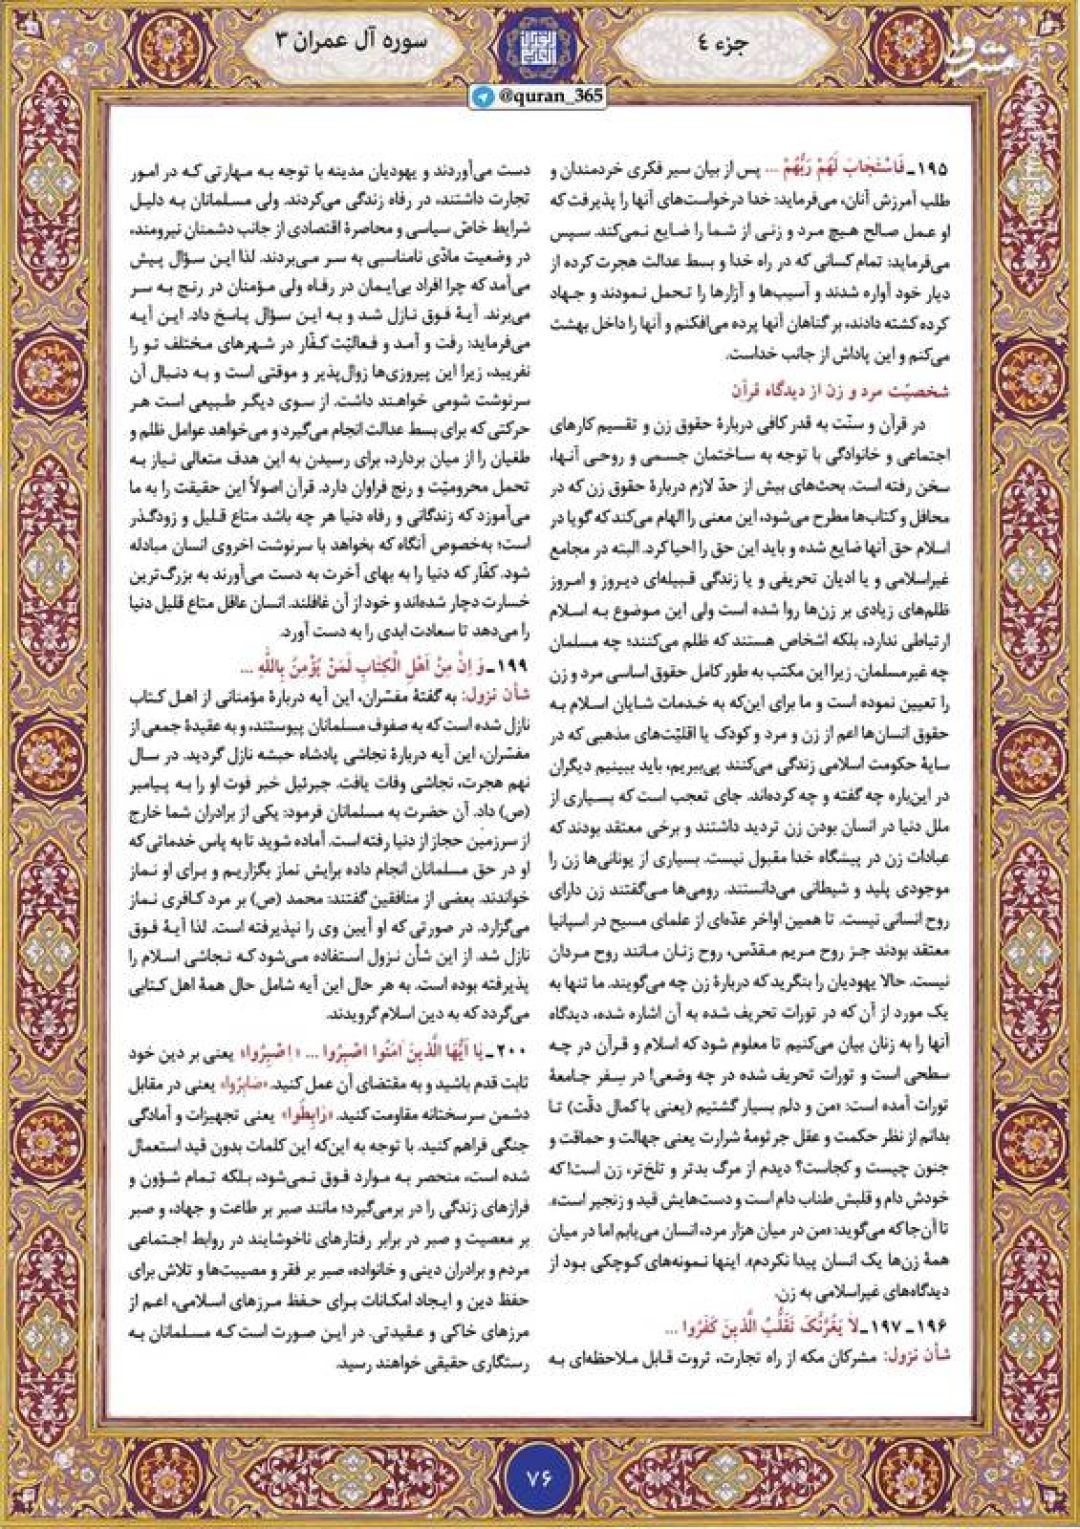 جزء ٤
سوره آل عمران ٣
مشرق
@quran_365
۱۹۵ـ فَاسْتَجٰابَ لَهُمْ رَبُّهُمْ ... پس از بیان سیر فکری خردمندان و
طلب آمرزش آنان، می‌فرماید: خدا درخواست‌های آنها را پذیرفت که
او عمل صالح هیچ مرد و زنی از شما را ضایع نمی‌کند. سپس
می‌فرماید: تمام کسانی که در راه خدا و بسط عدالت هجرت کرده از
دیار خود آواره شدند و آسیب‌ها و آزارها را تحمل نمودند و جهاد
کرده کشته دادند، بر گناهان آنها پرده می‌افکنم و آنها را داخل بهشت
می‌کنم و این پاداش از جانب خداست.
شخصیّت مرد و زن از دیدگاه قرآن
در قرآن و سنّت به قدر کافی دربارهٔ حقوق زن و تقسیم کارهای
اجتماعی و خانوادگی با توجه به ساختمان جسمی و روحی آنها،
سخن رفته است. بحث‌های بیش از حدّ لازم دربارهٔ حقوق زن که در
محافل و کتاب‌ها مطرح می‌شود، این معنی را الهام می‌کند که گویا در
اسلام حق آنها ضایع شده و باید این حق را احیا کرد. البته در مجامع
غیراسلامی و یا ادیان تحریفی و یا زندگی قبیله‌ای دیروز و امروز
ظلم‌های زیادی بر زن‌ها روا شده است ولی این موضوع به اسلام
ارتباطی ندارد، بلکه اشخاص هستند که ظلم می‌کنند؛ چه مسلمان
چه غیرمسلمان. زیرا این مکتب به طور کامل حقوق اساسی مرد و زن
را تعیین نموده است و ما برای این‌که به خدمات شایان اسلام به
حقوق انسان‌ها اعم از زن و مرد و کودک یا اقلیّت‌های مذهبی که در
سایهٔ حکومت اسلامی زندگی می‌کنند پی‌ببریم، باید ببینیم دیگران
در این‌باره چه گفته و چه کرده‌اند. جای تعجب است که بسیاری از
ملل دنیا در انسان بودن زن تردید داشتند و برخی معتقد بودند که
عبادات زن در پیشگاه خدا مقبول نیست. بسیاری از یونانی‌ها زن را
موجودی پلید و شیطانی می‌دانستند. رومی‌ها می‌گفتند زن دارای
روح انسانی نیست. تا همین اواخر عدّه‌ای از علمای مسیح در اسپانیا
معتقد بودند جز روح مریم مقدّس، روح زنان مانند روح مردان
نیست. حالا یهودیان را بنگرید که دربارهٔ زن چه می‌گویند. ما تنها به
یک مورد از آن که در تورات تحریف شده به آن اشاره شده، دیدگاه
آنها را به زنان بیان می‌کنیم تا معلوم شود که اسلام و قرآن در چه
سطحی است و تورات تحریف شده در چه وضعی! در سِفر جامعهٔ
تورات آمده است: «من و دلم بسیار گشتیم (یعنی با کمال دقّت) تا
بدانم از نظر حکمت و عقل جرثومهٔ شرارت یعنی جهالت و حماقت و
جنون چیست و کجاست؟ دیدم از مرگ بدتر و تلخ‌تر، زن است! که
خودش دام و قلبش طناب دام است و دست‌هایش قید و زنجیر است».
تا آن‌جا که می‌گوید: «من در میان هزار مرد، انسان می‌یابم اما در میان
همهٔ زن‌ها یک انسان پیدا نکردم». اینها نمونه‌های کوچکی بود از
دیدگاه‌های غیراسلامی به زن.
۱۹۶ـ ۱۹۷ـ لاٰ یَغُرَّنَّکَ تَقَلُّبُ الَّذینَ کَفَرُوا ...
شأن نزول: مشرکان مکه از راه تجارت، ثروت قابل ملاحظه‌ای به
دست می‌آوردند و یهودیان مدینه با توجه به مهارتی که در امور
تجارت داشتند، در رفاه زندگی می‌کردند. ولی مسلمانان به دلیل
شرایط خاصّ سیاسی و محاصرهٔ اقتصادی از جانب دشمنان نیرومند،
در وضعیت مادّی نامناسبی به سر می‌بردند. لذا این سؤال پیش
می‌آمد که چرا افراد بی‌ایمان در رفاه ولی مؤمنان در رنج به سر
می‌برند. آیهٔ فوق نازل شد و به این سؤال پاسخ داد. این آیه
می‌فرماید: رفت و آمد و فعالیّت کفّار در شهرهای مختلف تو را
نفریبد، زیرا این پیروزی‌ها زوال‌پذیر و موقتی است و به دنبال آن
سرنوشت شومی خواهند داشت. از سوی دیگر طبیعی است هر
حرکتی که برای بسط عدالت انجام می‌گیرد و می‌خواهد عوامل ظلم و
طغیان را از میان بردارد، برای رسیدن به این هدف متعالی نیاز به
تحمل محرومیّت و رنج فراوان دارد. قرآن اصولاً این حقیقت را به ما
می‌آموزد که زندگانی و رفاه دنیا هر چه باشد متاع قلیل و زودگذر
است؛ به‌خصوص آنگاه که بخواهد با سرنوشت اخروی انسان مبادله
شود. کفّار که دنیا را به بهای آخرت به دست می‌آورند به بزرگ‌ترین
خسارت دچار شده‌اند و خود از آن غافلند. انسان عاقل متاع قلیل دنیا
را می‌دهد تا سعادت ابدی را به دست آورد.
۱۹۹ـ وَ اِنْ مِنْ اَهْلِ الْکِتٰابِ لَمَنْ یُؤْمِنُ بِاللّٰهِ ...
شأن نزول: به گفتهٔ مفسّران، این آیه دربارهٔ مؤمنانی از اهل کتاب
نازل شده است که به صفوف مسلمانان پیوستند، و به عقیدهٔ جمعی از
مفسّران، این آیه دربارهٔ نجاشی پادشاه حبشه نازل گردید. در سال
نهم هجرت، نجاشی وفات یافت. جبرئیل خبر فوت او را به پیامبر
(ص) داد. آن حضرت به مسلمانان فرمود: یکی از برادران شما خارج
از سرزمین حجاز از دنیا رفته است. آماده شوید تا به پاس خدماتی که
او در حق مسلمانان انجام داده برایش نماز بگزاریم و برای او نماز
خواندند. بعضی از منافقین گفتند: محمد (ص) بر مرد کافری نماز
می‌گزارد. در صورتی که او آیین وی را نپذیرفته است. لذا آیهٔ فوق
نازل شد. از این شأن نزول استفاده می‌شود که نجاشی اسلام را
پذیرفته بوده است. به هر حال این آیه شامل حال همهٔ اهل کتابی
می‌گردد که به دین اسلام گرویدند.
۲۰۰ـ یٰا اَیُّهَا الَّذینَ اٰمَنُوا اصْبِرُوا ... «اِصْبِرُوا» یعنی بر دین خود
ثابت قدم باشید و به مقتضای آن عمل کنید. «صٰابِرُوا» یعنی در مقابل
دشمن سرسختانه مقاومت کنید. «رٰابِطُوا» یعنی تجهیزات و آمادگی
جنگی فراهم کنید. با توجه به این‌که این کلمات بدون قید استعمال
شده است، منحصر به موارد فوق نمی‌شود، بلکه تمام شؤون و
فرازهای زندگی را در برمی‌گیرد؛ مانند صبر بر طاعت و جهاد، و صبر
بر معصیت و صبر در برابر رفتارهای ناخوشایند در روابط اجتماعی
مردم و برادران دینی و خانواده، صبر بر فقر و مصیبت‌ها و تلاش برای
حفظ دین و ایجاد امکانات برای حفظ مرزهای اسلامی، اعم از
مرزهای خاکی و عقیدتی. در این صورت است که مسلمانان به
رستگاری حقیقی خواهند رسید.
۷۶